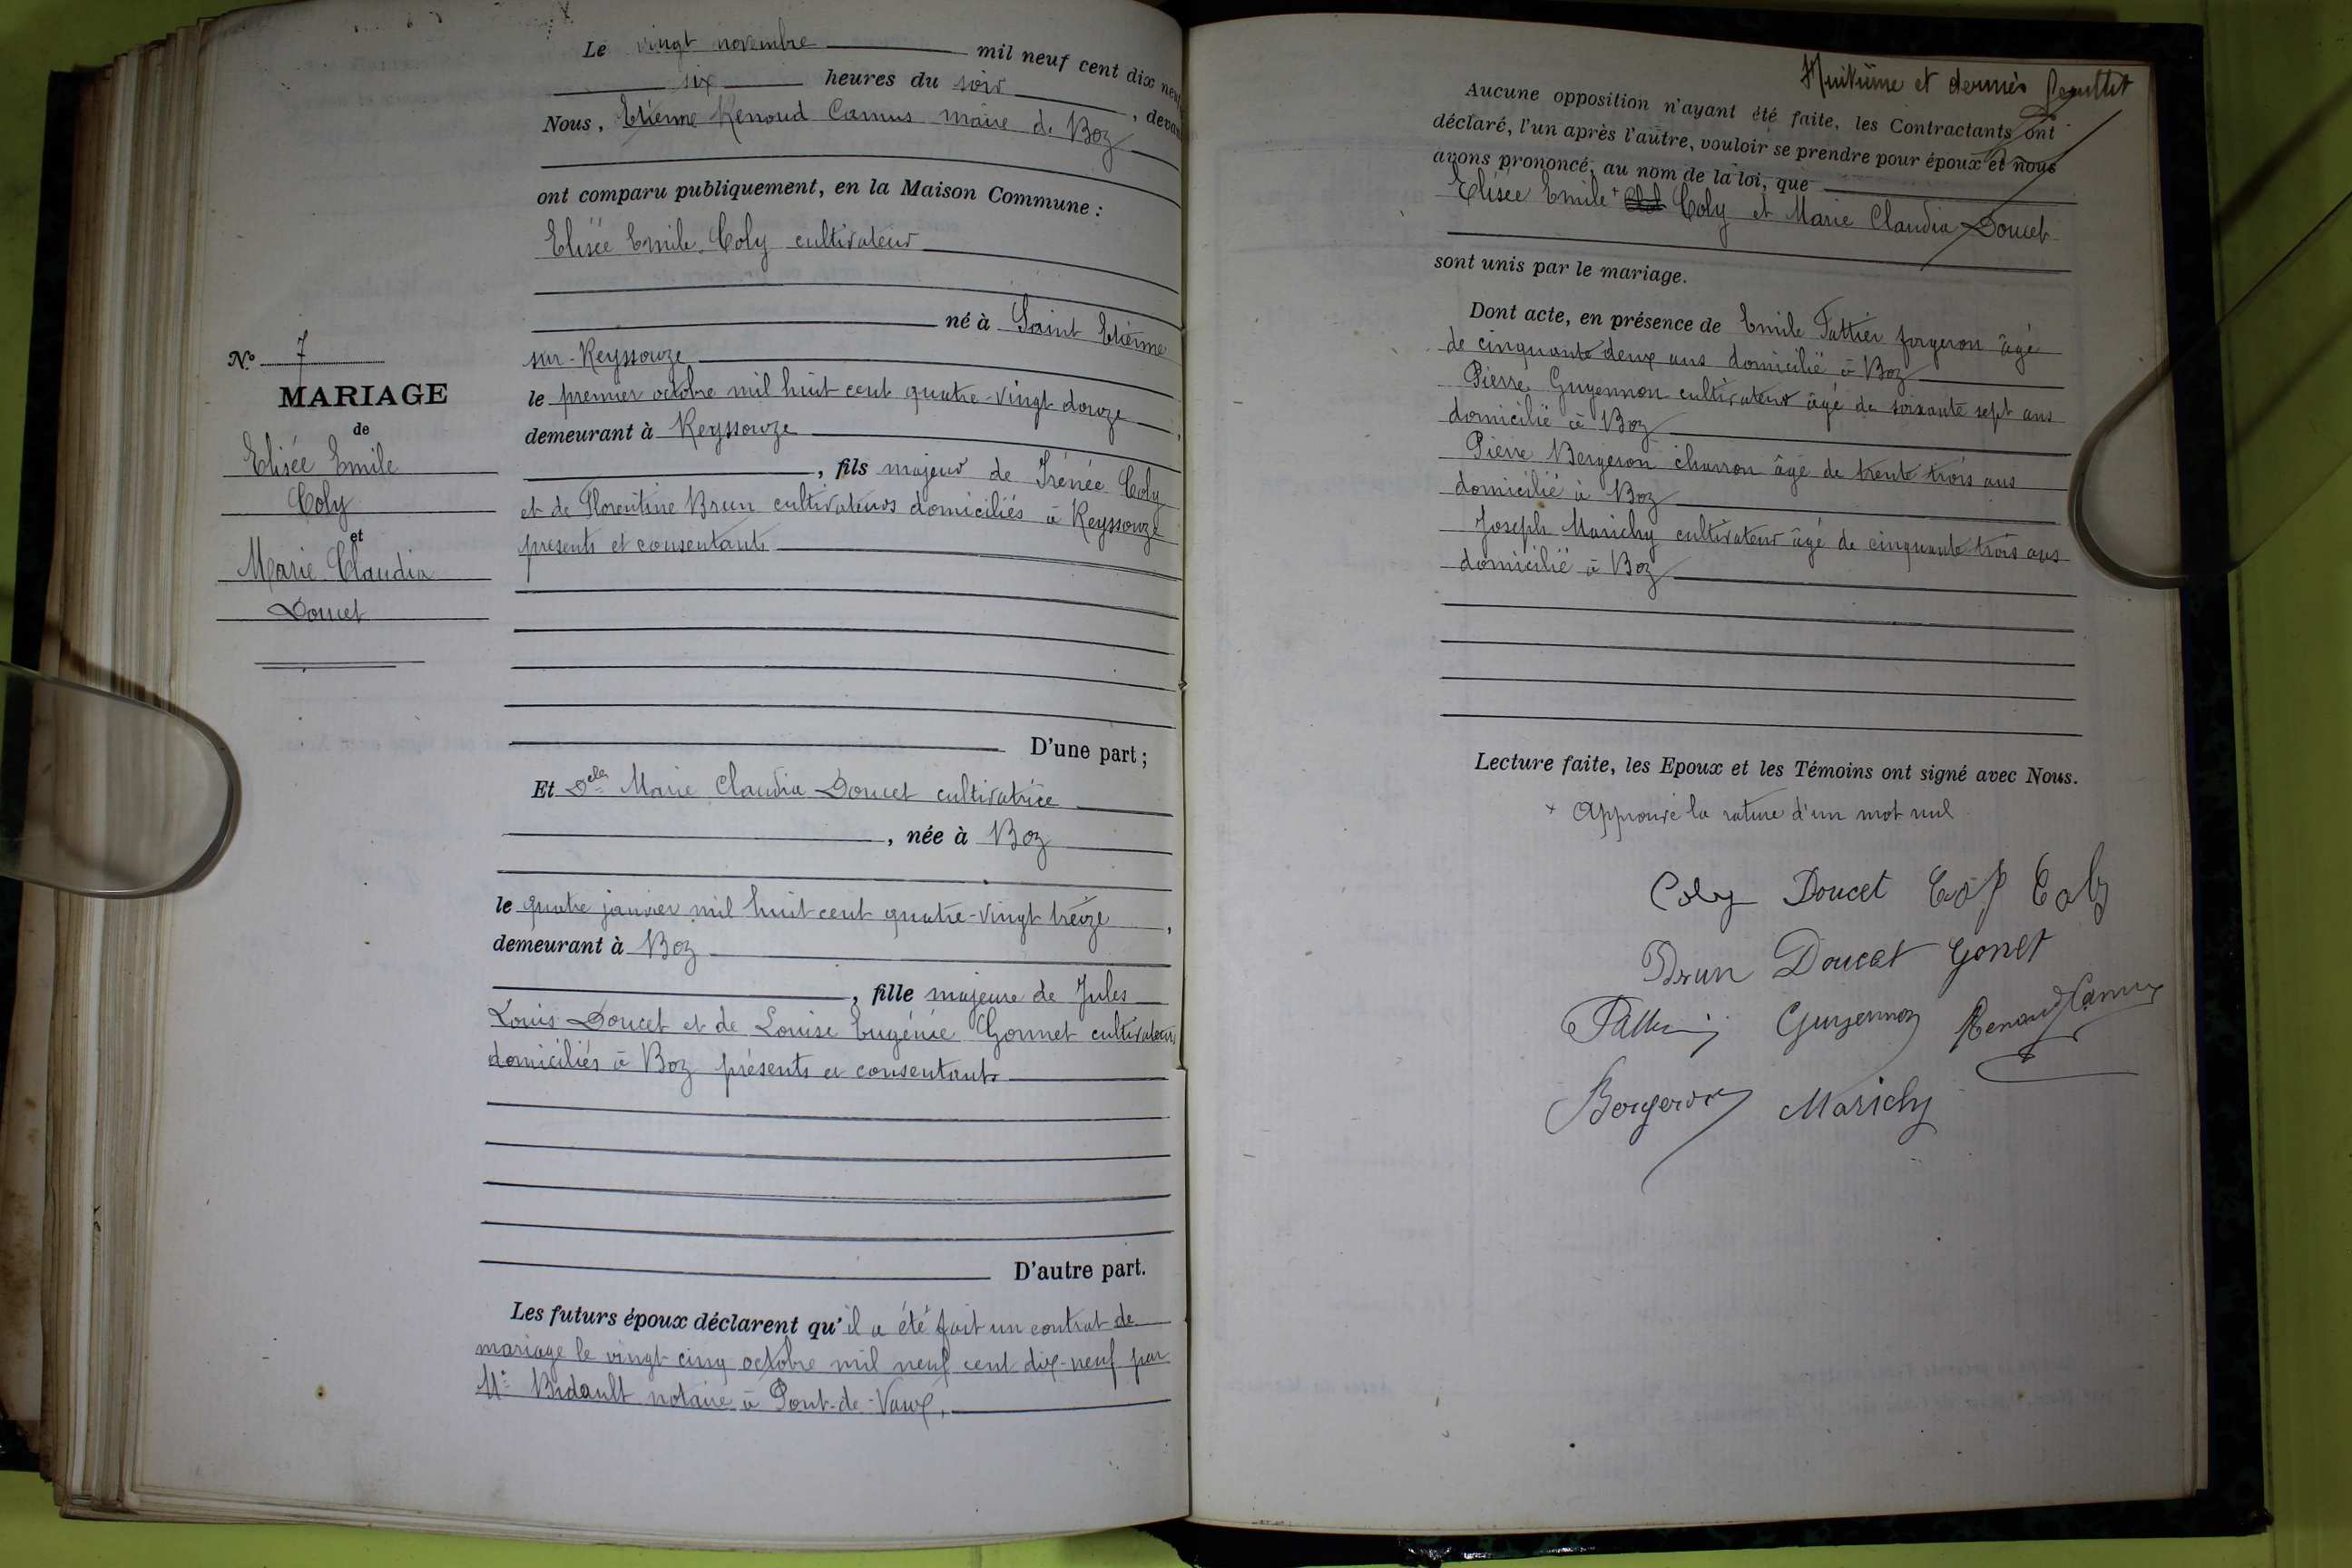 Le vingt novembre mil neuf cent dix neuf
six heures du soir, devant
Nous, Etienne Renoud Camus maire de Boz
ont comparu publiquement, en la Maison Commune :
Elisée Emile Coly cultivateur
né à Saint Etienne
sur-Reyssouze
le premier octobre mil huit cent quatre-vingt douze,
demeurant à Reyssouze
, fils majeur de Irénée Coly
et de Florentine Brun cultivateurs domiciliés à Reyssouze
présents et consentants
D'une part ;
N° 7
MARIAGE
de
Elisée Emile
Coly
et
Marie Claudia
Doucet
Et Delle Marie Claudia Doucet cultivatrice
, née à Boz
le quatre janvier mil huit cent quatre-vingt treize,
demeurant à Boz
, fille majeure de Jules
Louis Doucet et de Louise Eugénie Gonnet cultivateurs
domiciliés à Boz présents et consentants
D'autre part.
Les futurs époux déclarent qu'il a été fait un contrat de
mariage le vingt-cinq octobre mil neuf cent dix-neuf par
Me Bidault notaire à Pont-de-Vaux.
Huitième et dernier feuillet
Aucune opposition n'ayant été faite, les Contractants ont
déclaré, l'un après l'autre, vouloir se prendre pour époux et nous
avons prononcé, au nom de la loi, que
Elisée Emile + Coly et Marie Claudia Doucet
sont unis par le mariage.
Dont acte, en présence de Emile Pattier forgeron âgé
de cinquante deux ans domicilié à Boz
Pierre Guyennon cultivateur âgé de soixante sept ans
domicilié à Boz
Pierre Bergeron charron âgé de trente trois ans
domicilié à Boz
Joseph Marichy cultivateur âgé de cinquante trois ans
domicilié à Boz
Lecture faite, les Epoux et les Témoins ont signé avec Nous.
+ Approuvé la rature d'un mot nul
Coly Doucet Coly
Brun Doucet Gonet
Guyennon Renoud Camus
Bergeron Marichy